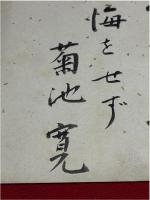 悔をせず
菊池寛